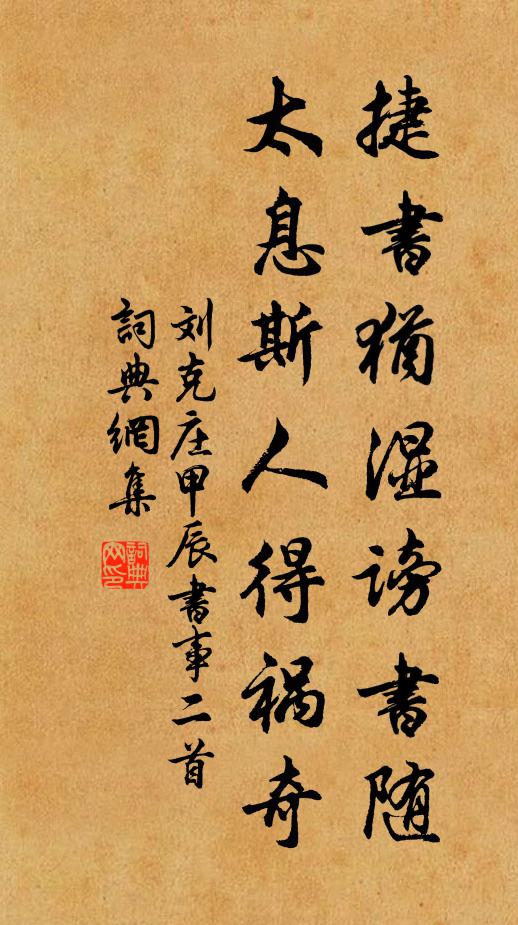 捷書猶湿謗書随
太息斯人得禍奇
刘克庄甲辰書事二首
詞典網集
詞典网印